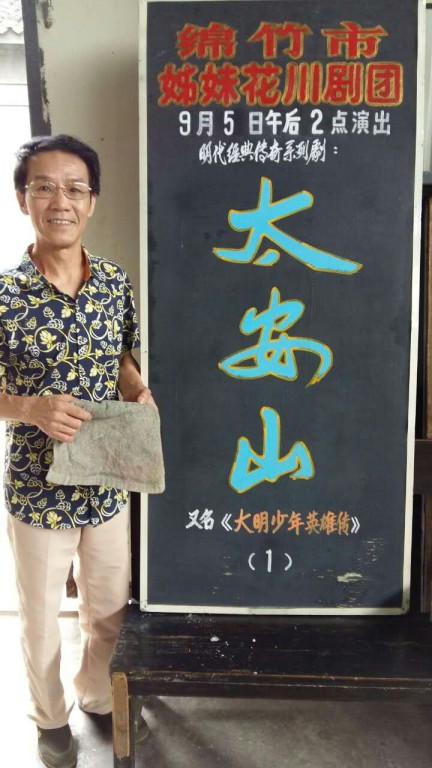 绵竹市
姊妹花川剧团
9月5日午后2点演出
明代经典传奇系列劇：
太安山
又名《大明少年英雄传》
（1）